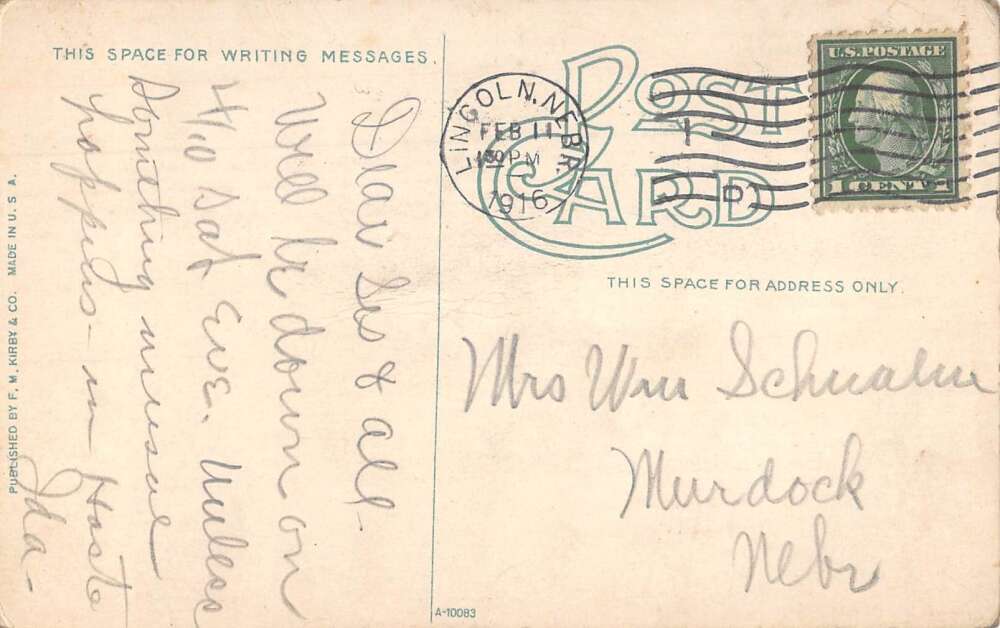 THIS SPACE FOR WRITING MESSAGES.
POST
CARD
LINCOLN, NEBR.
FEB 11
1 30 PM
1916
U.S. POSTAGE
1 CENT 1
THIS SPACE FOR ADDRESS ONLY.
Dear Sis & all-
Will be down on
4/10 Sat Eve. Unless
Something unusual
happens - in Haste
Ida-
Mrs Wm Schwalm
Murdock
Nebr
PUBLISHED BY F. M. KIRBY & CO. MADE IN U. S. A.
A-10083